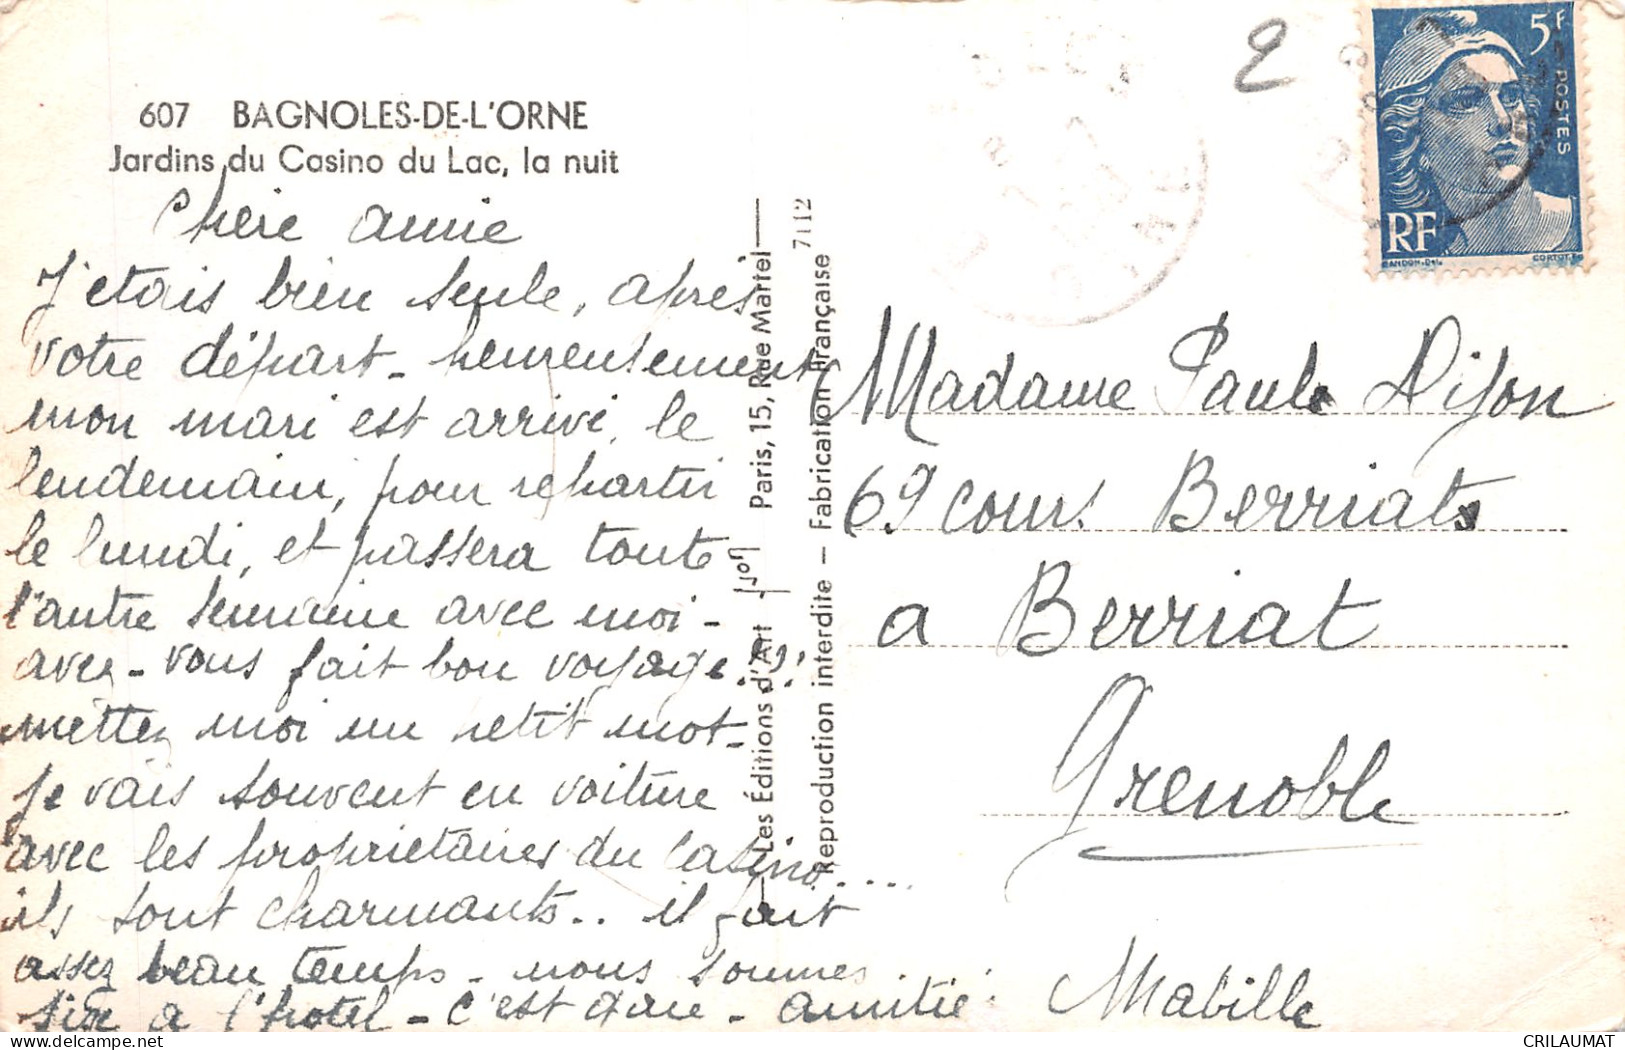 607 BAGNOLES-DE-L'ORNE
Jardins du Casino du Lac, la nuit
Chère amie
J'etais bien seule, après
votre départ - heureusement
mon mari est arrivé, le
lendemain, pour repartir
le lundi, et passera toute
l'autre semaine avec moi -
avez-vous fait bon voyage ?
mettez moi un petit mot -
je vais souvent en voiture
avec les propriétaires du Casino ....
ils sont charmants.. il fait
assez beau temps - nous sommes
à l'hotel - c'est - amitié
Mabille
Les Éditions d'Art Paris, 15, Rue Martel
Reproduction interdite — Fabrication Française 7112
2
5F
POSTES
RF
GANDON.DEL
CORTOT.
Madame Paule Dijon
69 cours Berriats
a Berriat
Grenoble
CRILAUMAT